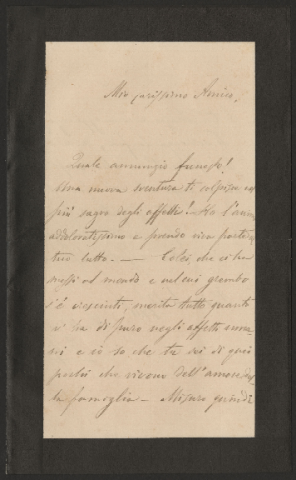 Mio carissimo Amico,
Quale annunzio funesto!
Una nuova sventura ti colpisce nel
più sagro degli affetti! Ho l'anima
addoloratissima e prendo viva parte al
tuo lutto. — Colei, che ci ha
messi al mondo e nel cui grembo
s'è cresciuti, merita tutto quanto
vi ha di puro negli affetti uma
ni e io so, che tu sei di quei
pochi che vivono dell'amore del
la famiglia — Misuro quindi